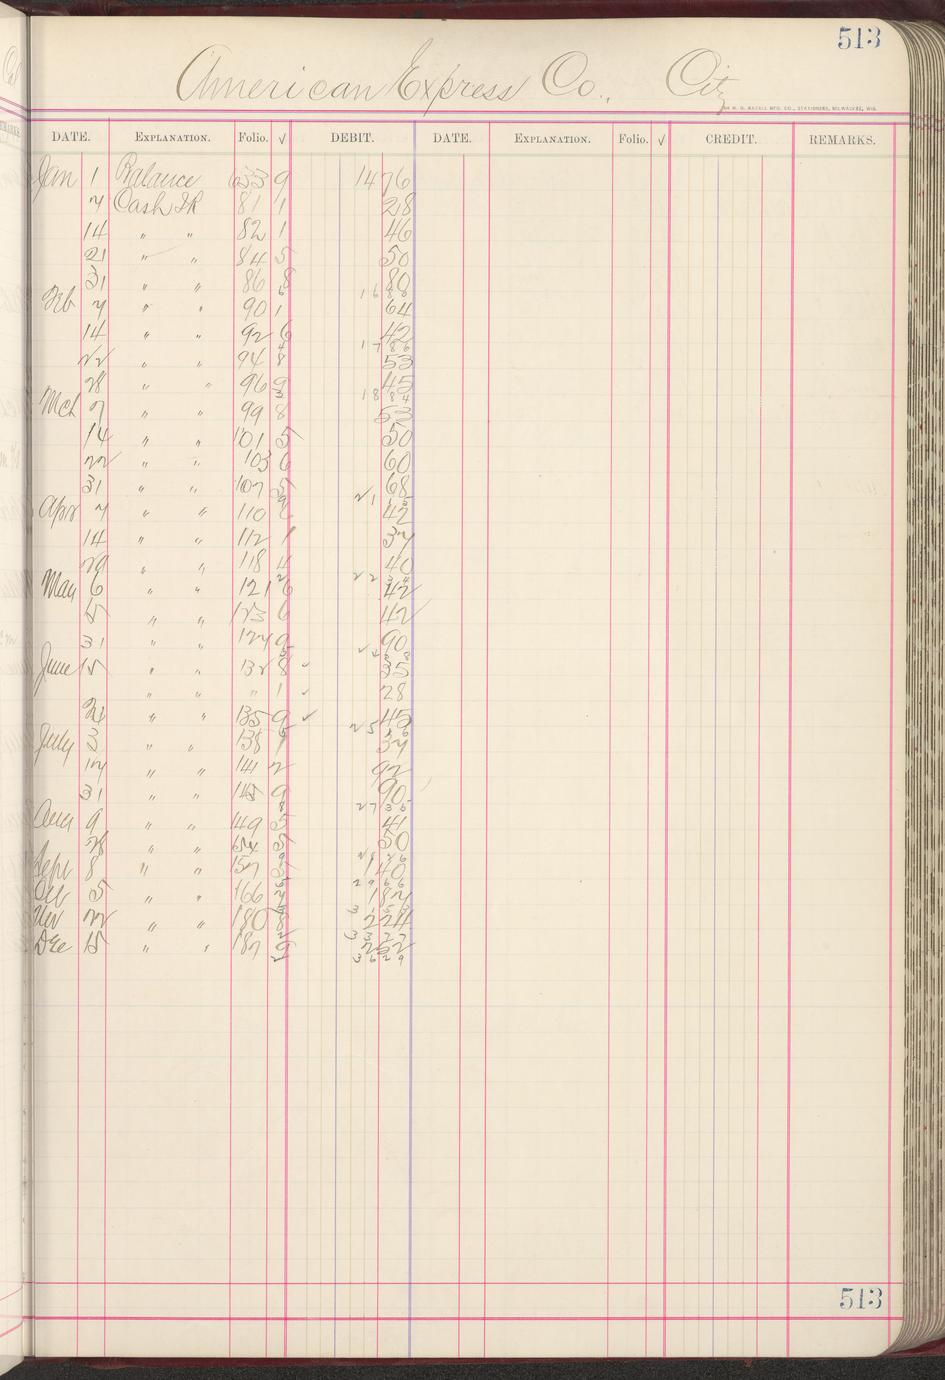 513
American Express Co., City
DATE. EXPLANATION. Folio. √ DEBIT. DATE. EXPLANATION. Folio. √ CREDIT. REMARKS.
Jan 1 Balance 633 9 14 76
7 Cash IR 81 1 28
14 " " 82 1 46
21 " " 84 5 50
31 " " 86 8 80
16 88
Feb 7 " " 90 1 64
14 " " 92 6 42
17 86
22 " " 94 8 53
28 " " 96 9 45
18 84
Mch 7 " " 99 8 53
14 " " 101 5 50
22 " " 103 6 60
31 " " 107 5 68
21
Apr 7 " " 110 42
14 " " 112 1 37
29 " " 118 4 40
22 34
May 6 " " 121 6 42
15 " " 123 6 42
31 " " 127 9 90
June 15 " " 132 8 ✓ 35
" " " 1 ✓ 28
24 " " 135 9 ✓ 45
25 16
July 3 " " 138 1 37
17 " " 141 2 92
31 " " 145 9 90
27 35
Aug 9 " " 149 5 41
28 " " 154 5 50
28 26
Sept 8 " " 157 1 40
29 66
Oct 5 " " 166 1 87
31 53
Nov 22 " " 180 8 2 24
33 77
Dec 15 " " 187 9 2 52
36 29
513